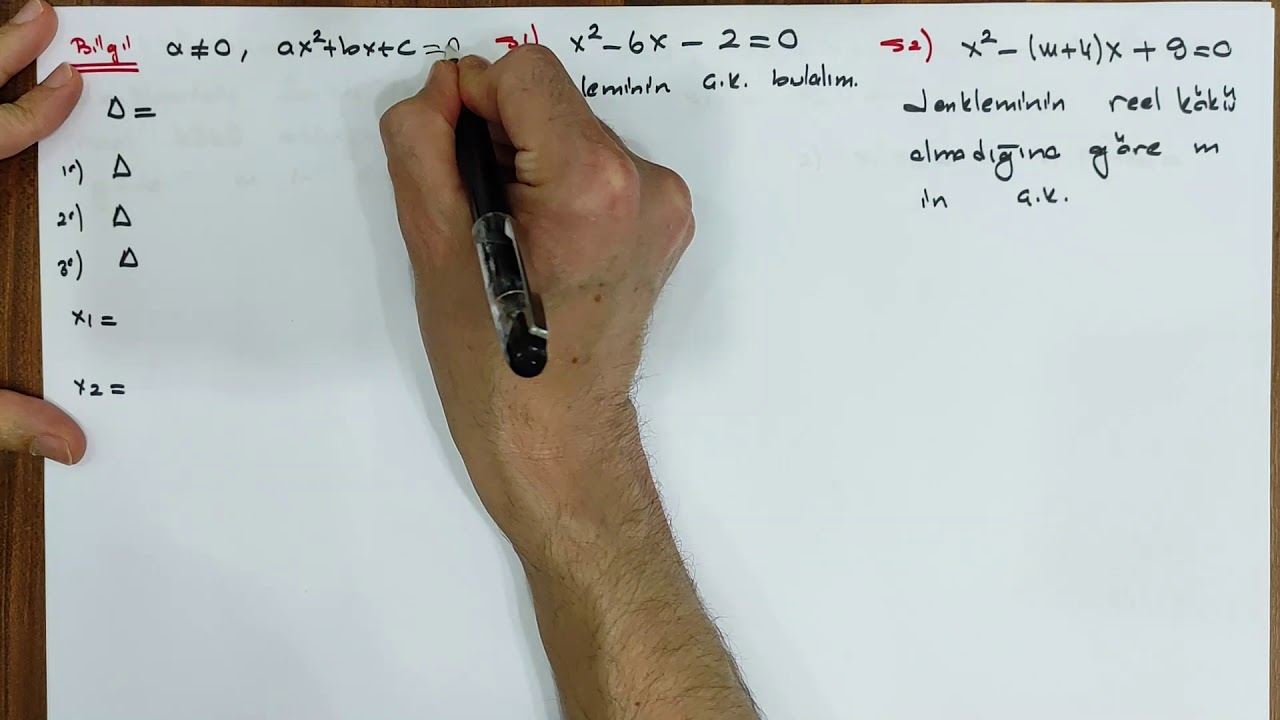 Bilgi a≠0, ax²+bx+c=0
Δ=
1°) Δ
2°) Δ
3°) Δ
x₁=
x₂=
S1) x²-6x-2=0
leminin a.k. bulalım.
S2) x²-(m+4)x+9=0
denkleminin reel kökü
olmadığına göre m
in a.k.